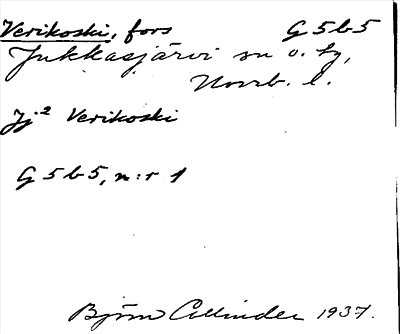 Verikoski, fors G 5 b 5
Jukkasjärvi sn o. tg,
Norrb. l.
Jj² Verikoski
G 5 b 5, n:r 1
Björn Collinder 1937.